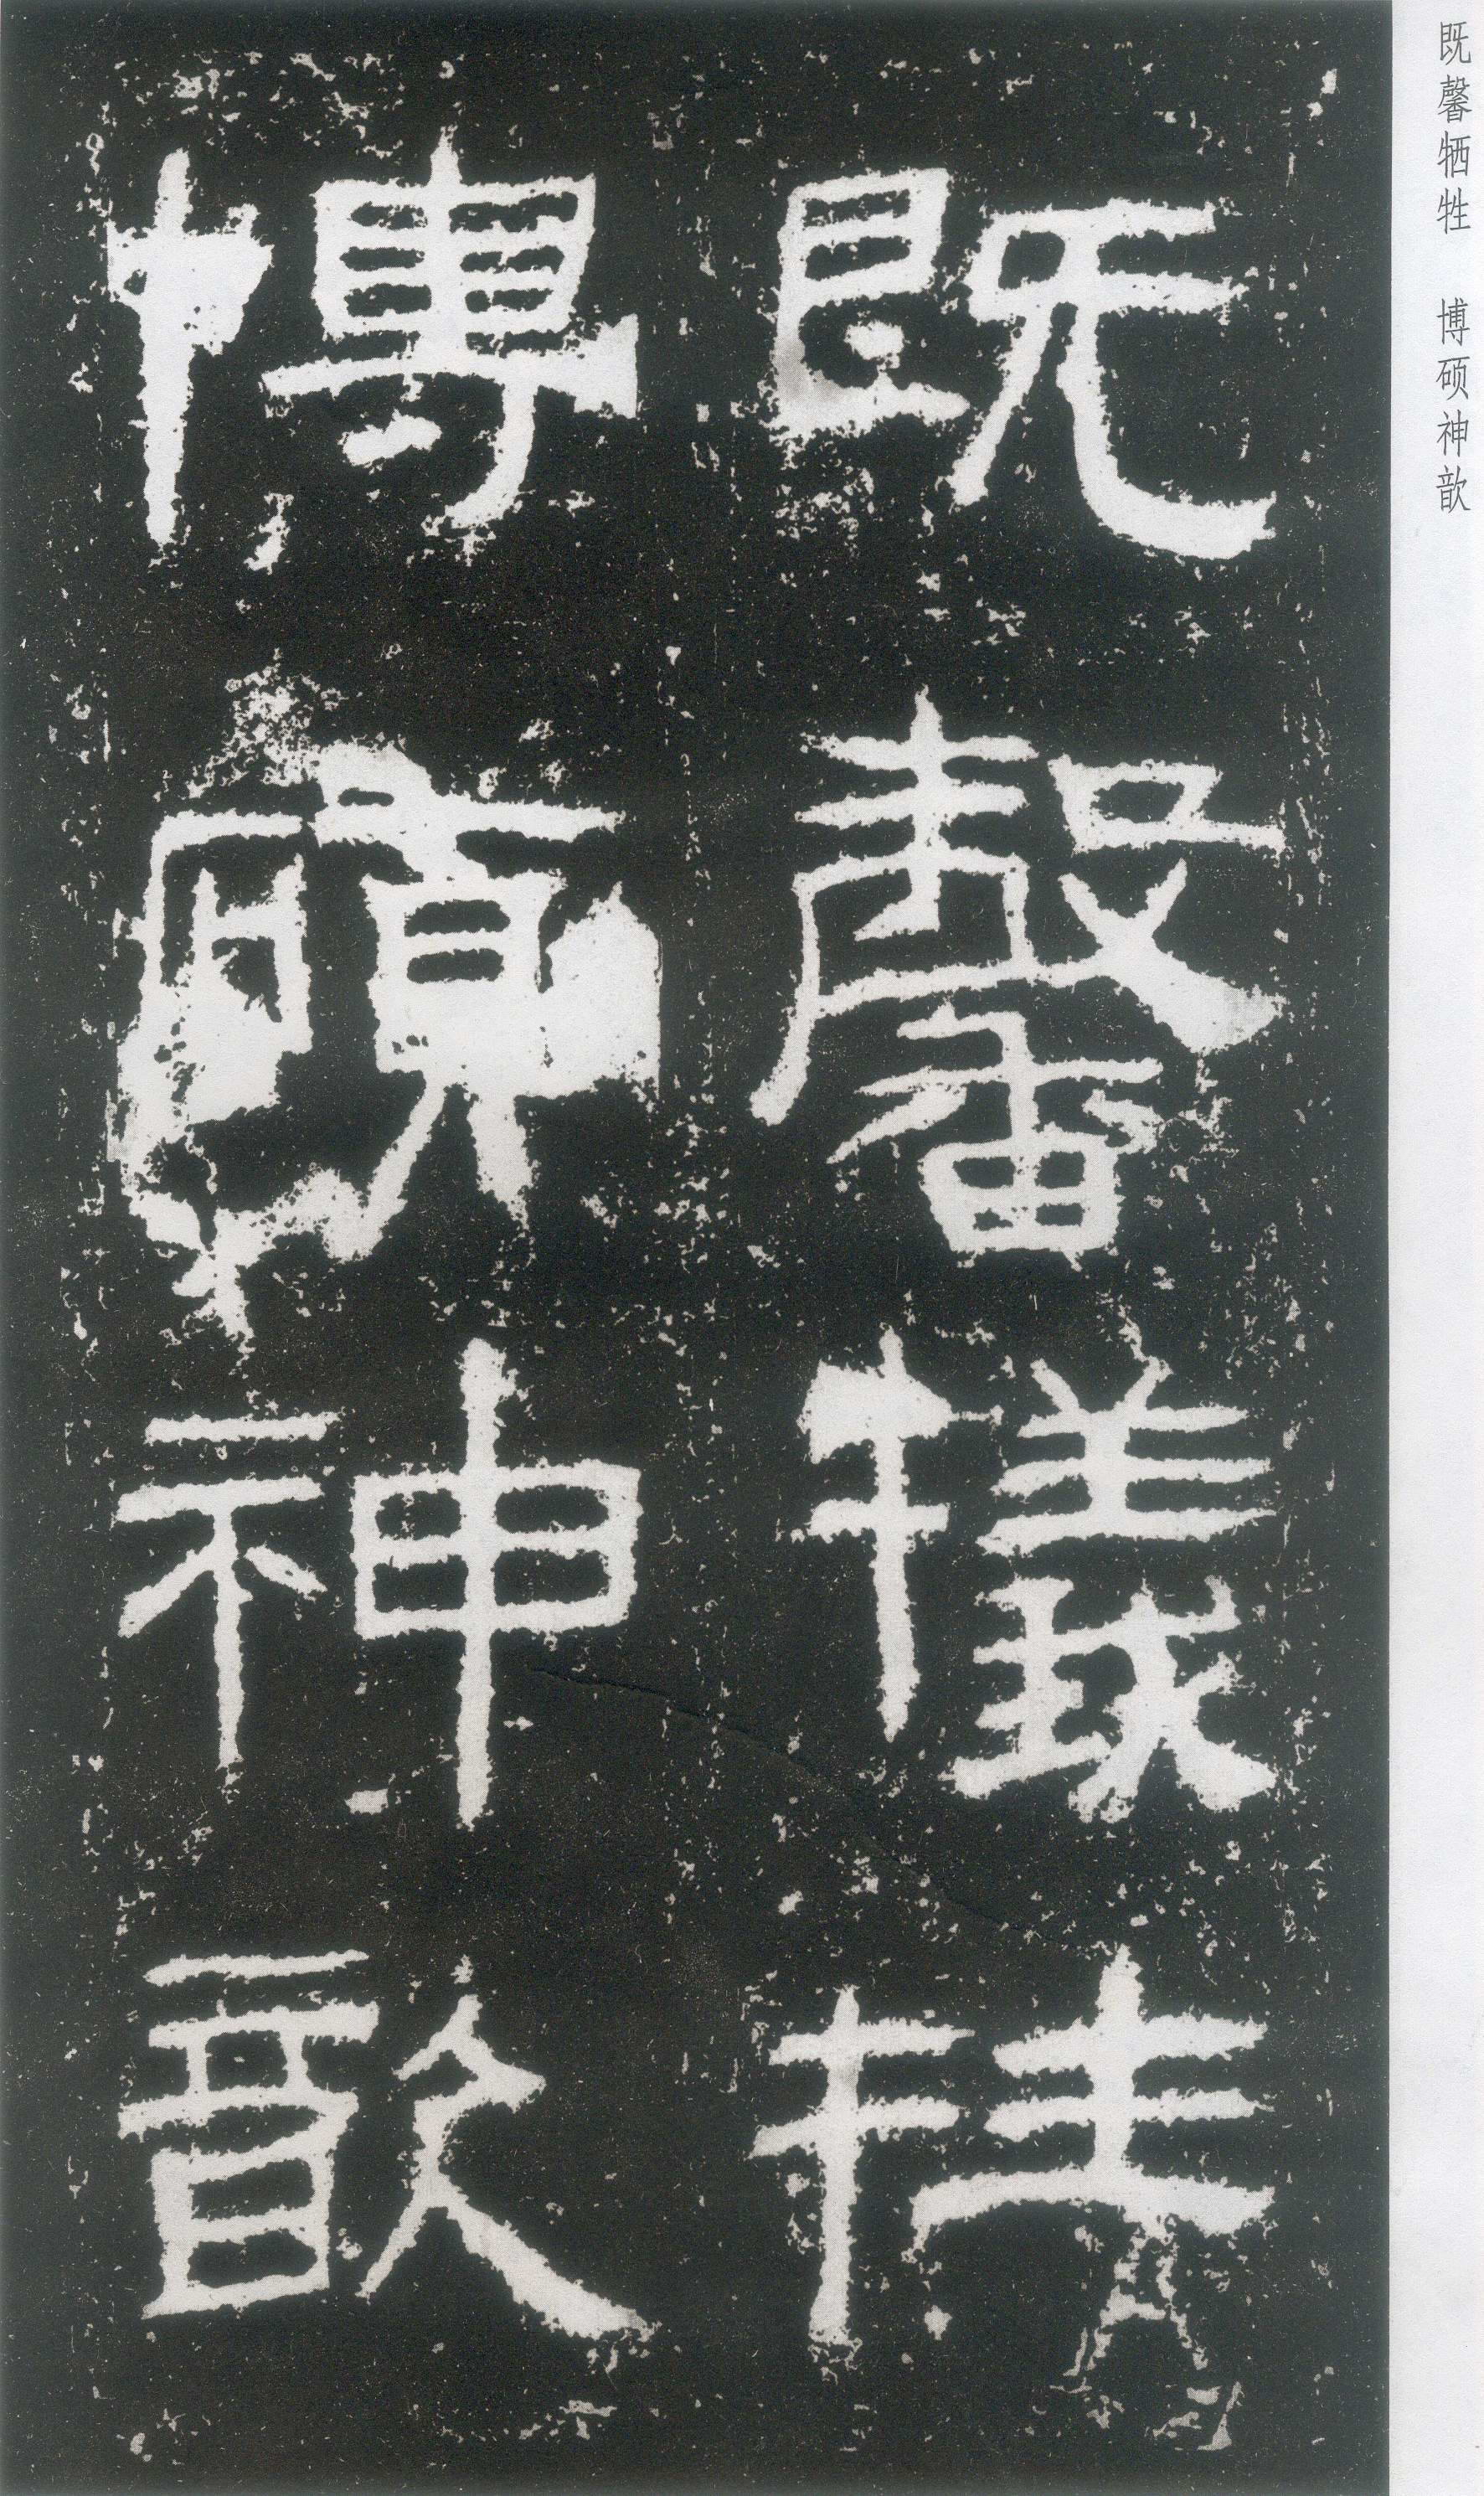 既馨犧牲
博碩神歆
既馨牺牲　博硕神歆